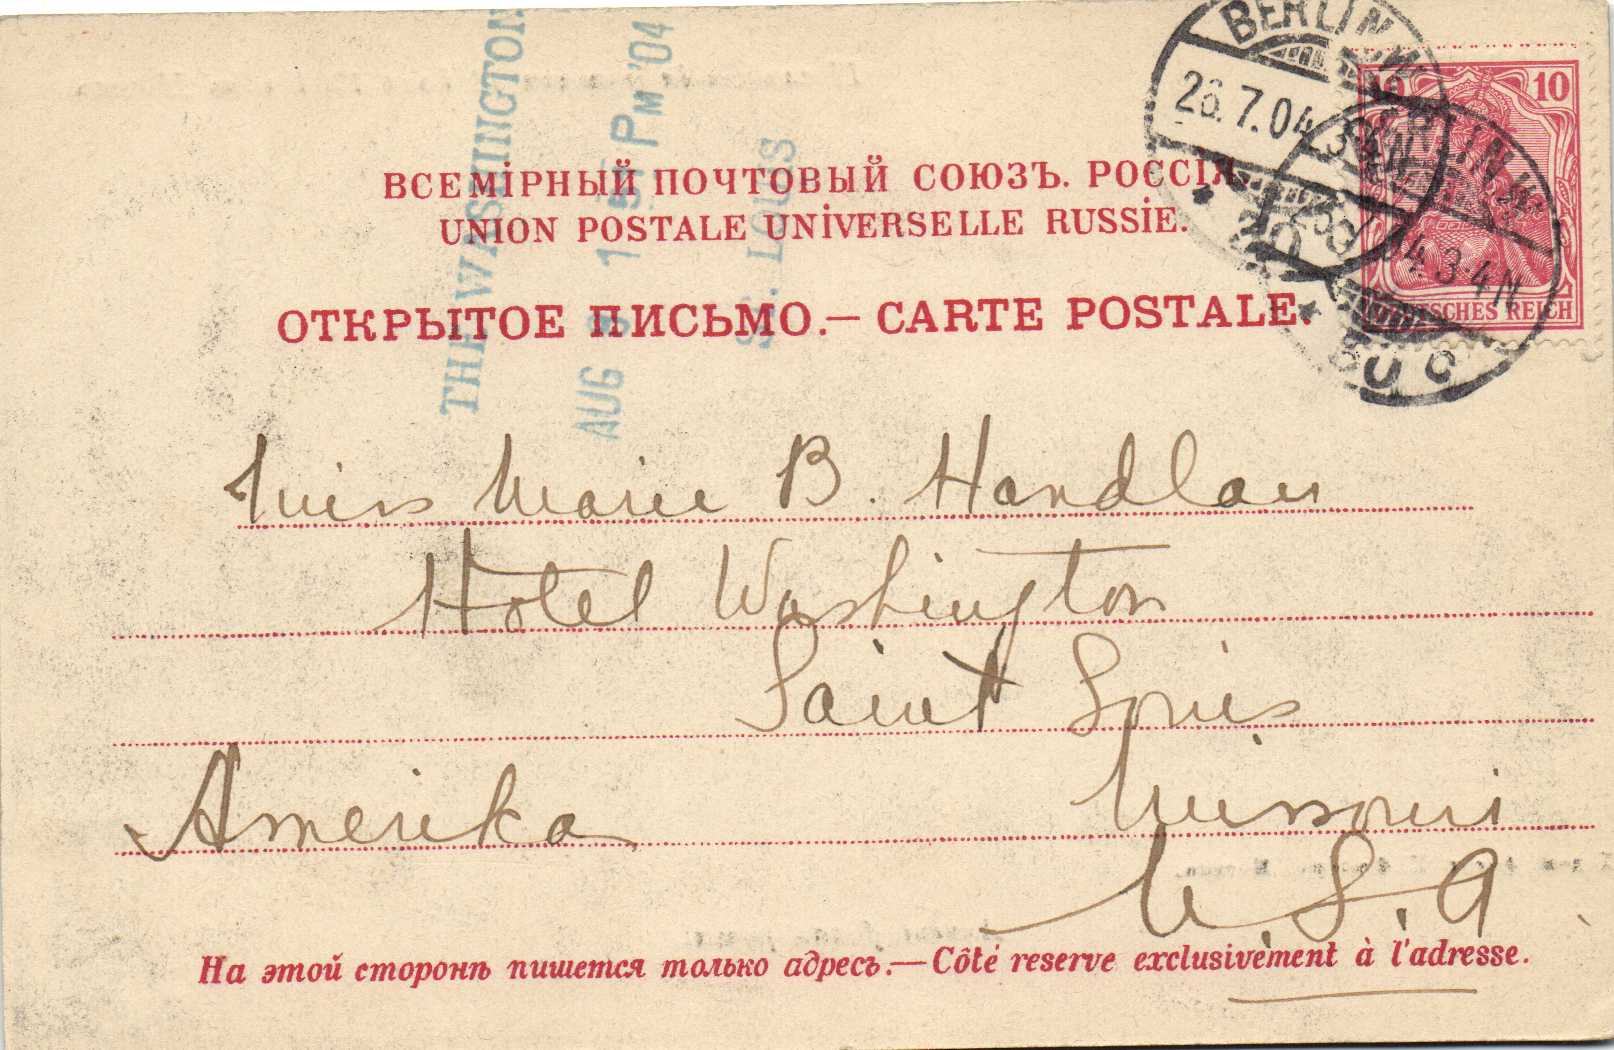 THE WASHINGTON
AUG 3 1 PM '04
ST. LOUIS
BERLIN.W.
26.7.04. 3-4N.
BERLIN.W.
04.3-4N
10
DEUTSCHES REICH
ВСЕМІРНЫЙ ПОЧТОВЫЙ СОЮЗЪ. РОССІЯ
UNION POSTALE UNIVERSELLE RUSSIE.
ОТКРЫТОЕ ПИСЬМО.— CARTE POSTALE.
Miss Marie B. Handlan
Hotel Washington
Saint Louis
Missouri
Amerika
U.S.A
На этой сторонѣ пишется только адресъ.—Côté reserve exclusivement à l'adresse.